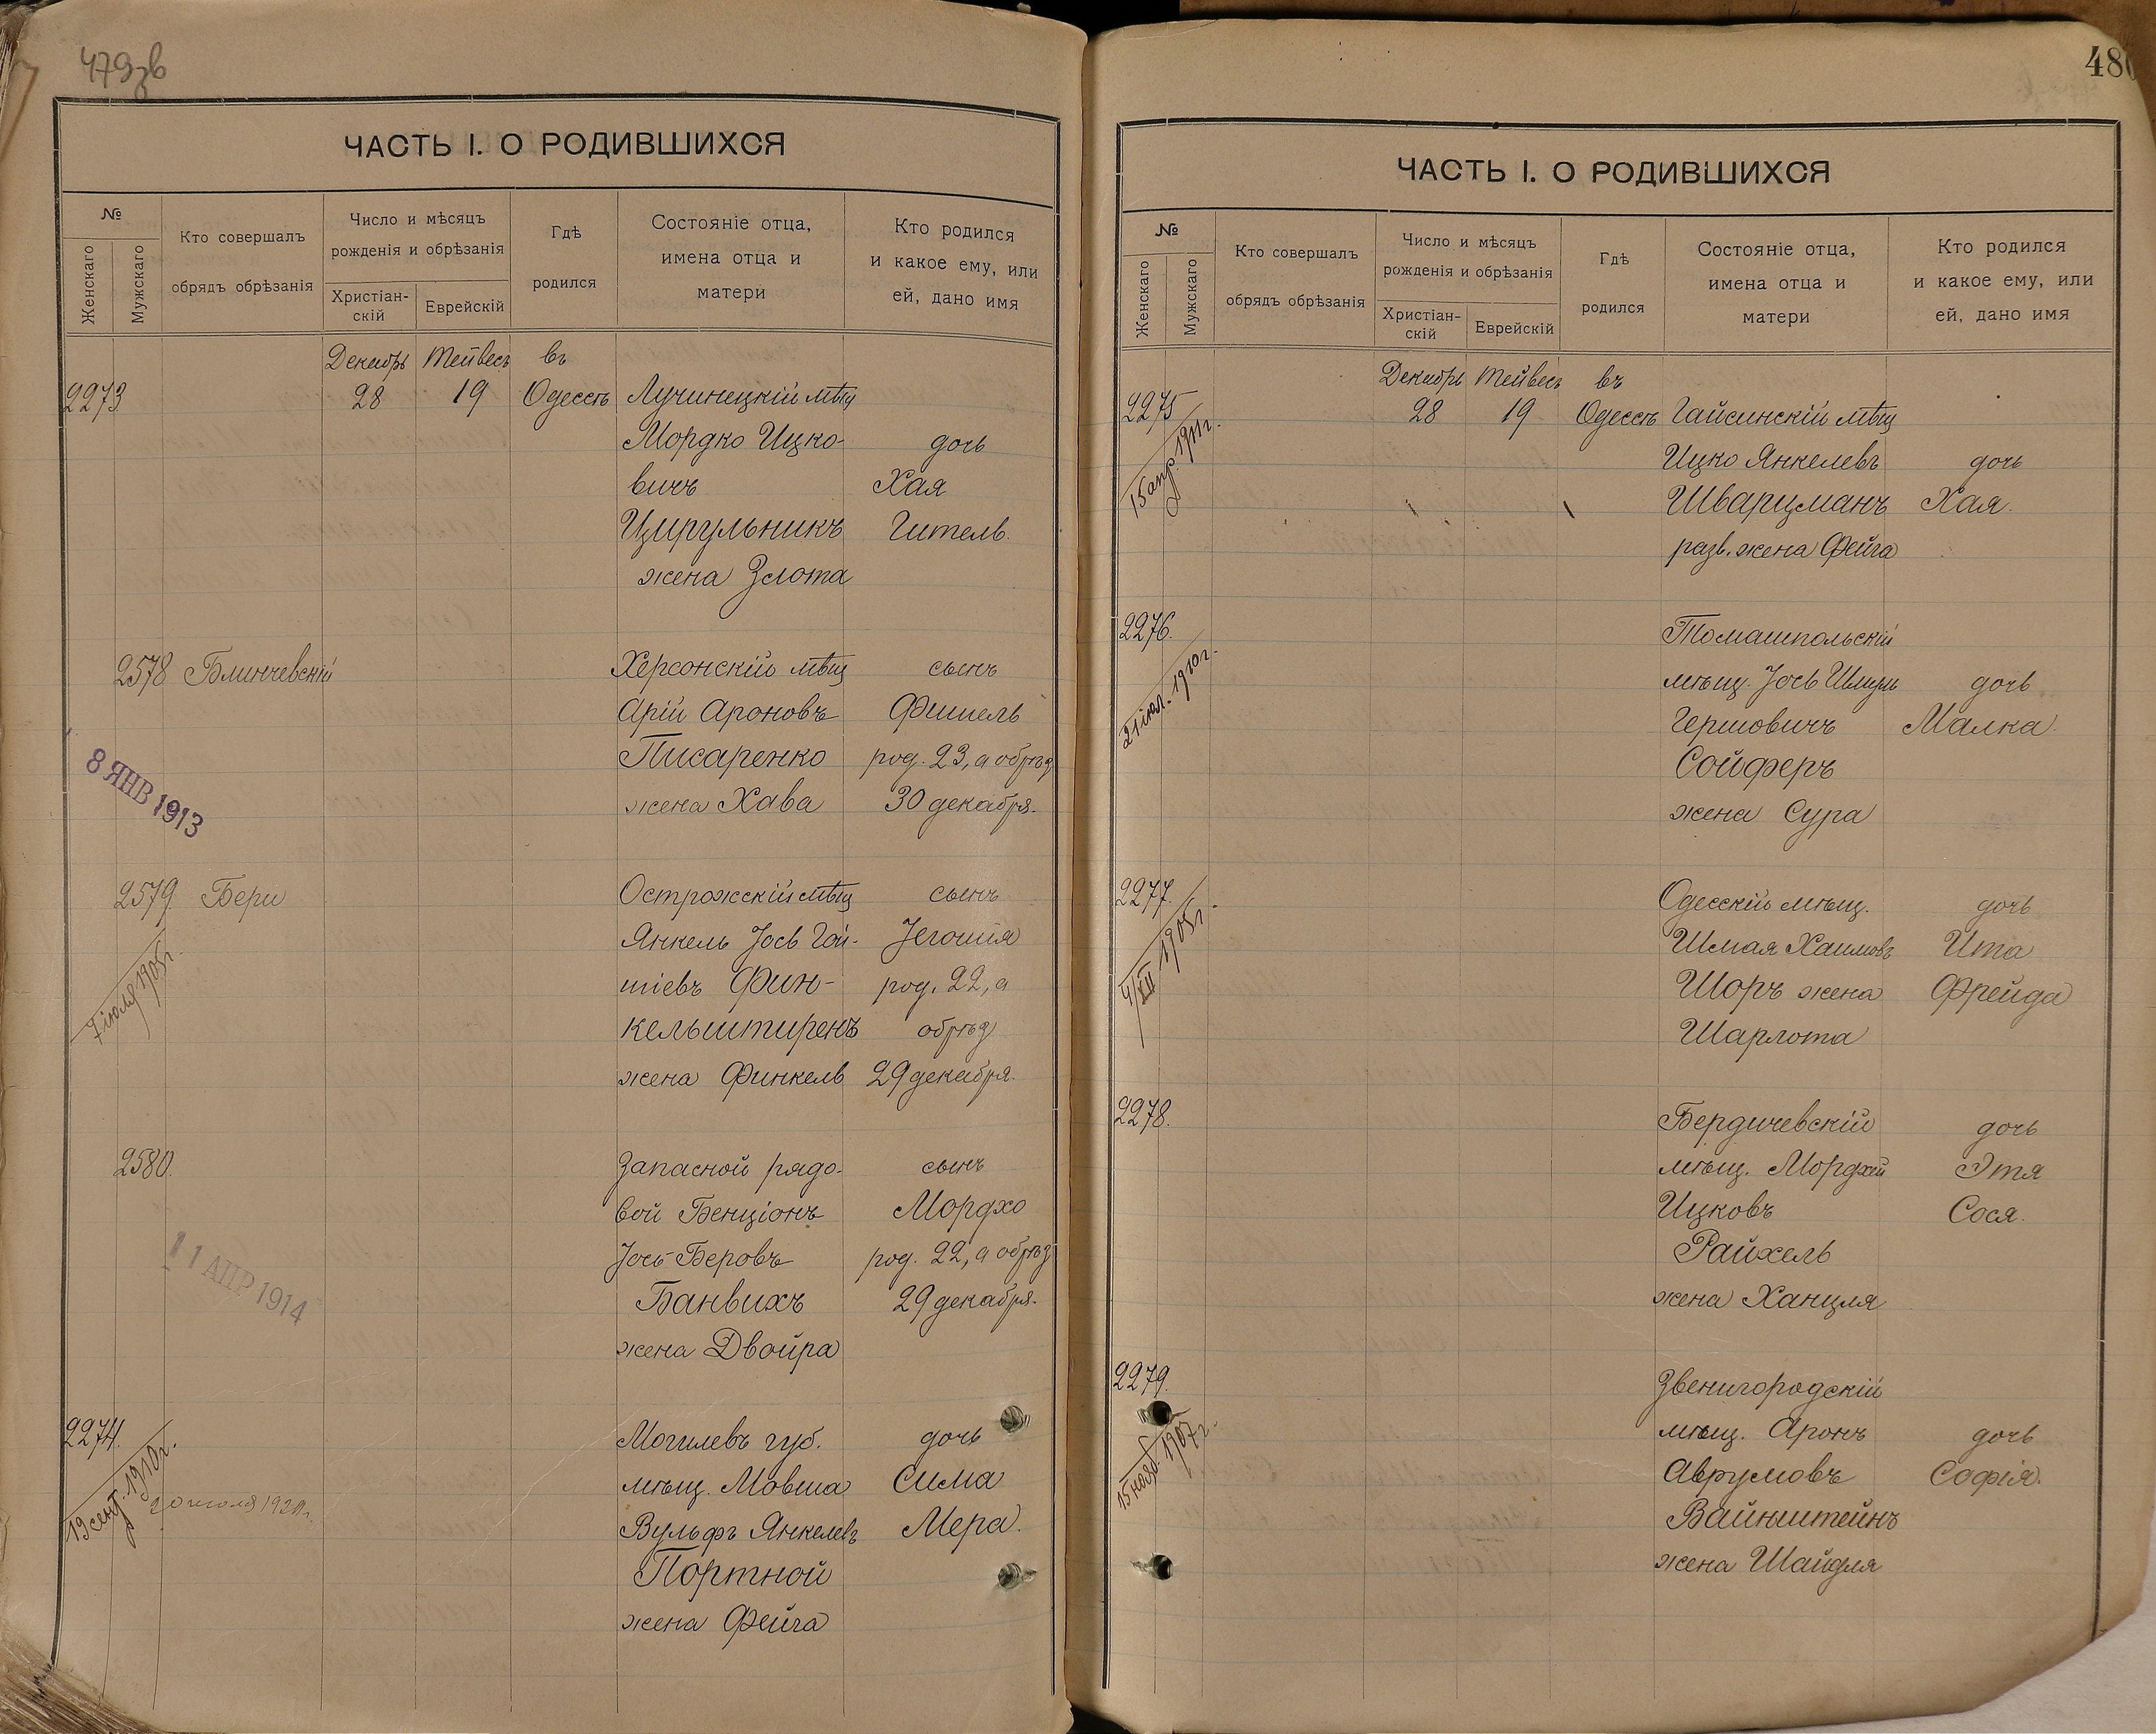 479зв
ЧАСТЬ I. О РОДИВШИХСЯ
№
Женскаго
Мужскаго
Кто совершалъ
обрядъ обрѣзанія
Число и мѣсяцъ
рожденія и обрѣзанія
Христіан-
скій
Еврейскій
Гдѣ
родился
Состояніе отца,
имена отца и
матери
Кто родился
и какое ему, или
ей, дано имя
Декабрь Тейвесъ въ
2273 28 19 Одессѣ Лучинецкій мѣщ
Мордко Ицко- дочь
вичъ Хая
Цирульникъ Гитель.
жена Злота
2578 Блинчевскій Херсонскій мѣщ сынъ
Арій Ароновъ Фишель
Писаренко род. 23, а обрѣз
жена Хава 30 декабря.
8 ЯНВ 1913
2579 Бери Острожскій мѣщ сынъ
Янкель Іось Гой- Іегошія
шіевъ Фин- род. 22, а
кельштиренъ обрѣз
жена Финкель 29 декабря.
7 іюля 1905г.
2580. Запасной рядо- сынъ
вой Бенціонъ Мордхо
Іось-Беровъ род. 22, а обрѣз
Банвихъ 29 декабря.
жена Двойра
11 АПР 1914
2274. Могилевъ губ. дочь
мѣщ. Мовша Сима
Вульфъ Янкелевъ Мера.
Портной
жена Фейга
19 сент. 1910г.
480
ЧАСТЬ I. О РОДИВШИХСЯ
№
Женскаго
Мужскаго
Кто совершалъ
обрядъ обрѣзанія
Число и мѣсяцъ
рожденія и обрѣзанія
Христіан-
скій
Еврейскій
Гдѣ
родился
Состояніе отца,
имена отца и
матери
Кто родился
и какое ему, или
ей, дано имя
Декабрь Тейвесъ въ
2275 28 19 Одессѣ Гайсинскій мѣщ
Ицко Янкелевъ дочь
Шварцманъ Хая.
разв. жена Фейга
15 апр. 1911г.
2276. Томашпольскій
мѣщ. Іось Шмуль дочь
Гершовичъ Малка
Сойферъ
жена Сура
21 іюл. 1910г.
2277. Одесскій мѣщ. дочь
Шмая Хаимовъ Ита
Шоръ жена Фрейда
Шарлота
4/XII 1905г.
2278. Бердичевскій дочь
мѣщ. Мордхей Этя
Ицковъ Сося.
Райхель
жена Ханцля
2279. Звенигородскій
мѣщ. Аронъ дочь
Аврумовъ Софія.
Вайнштейнъ
жена Шайдля
15 нояб. 1907г.